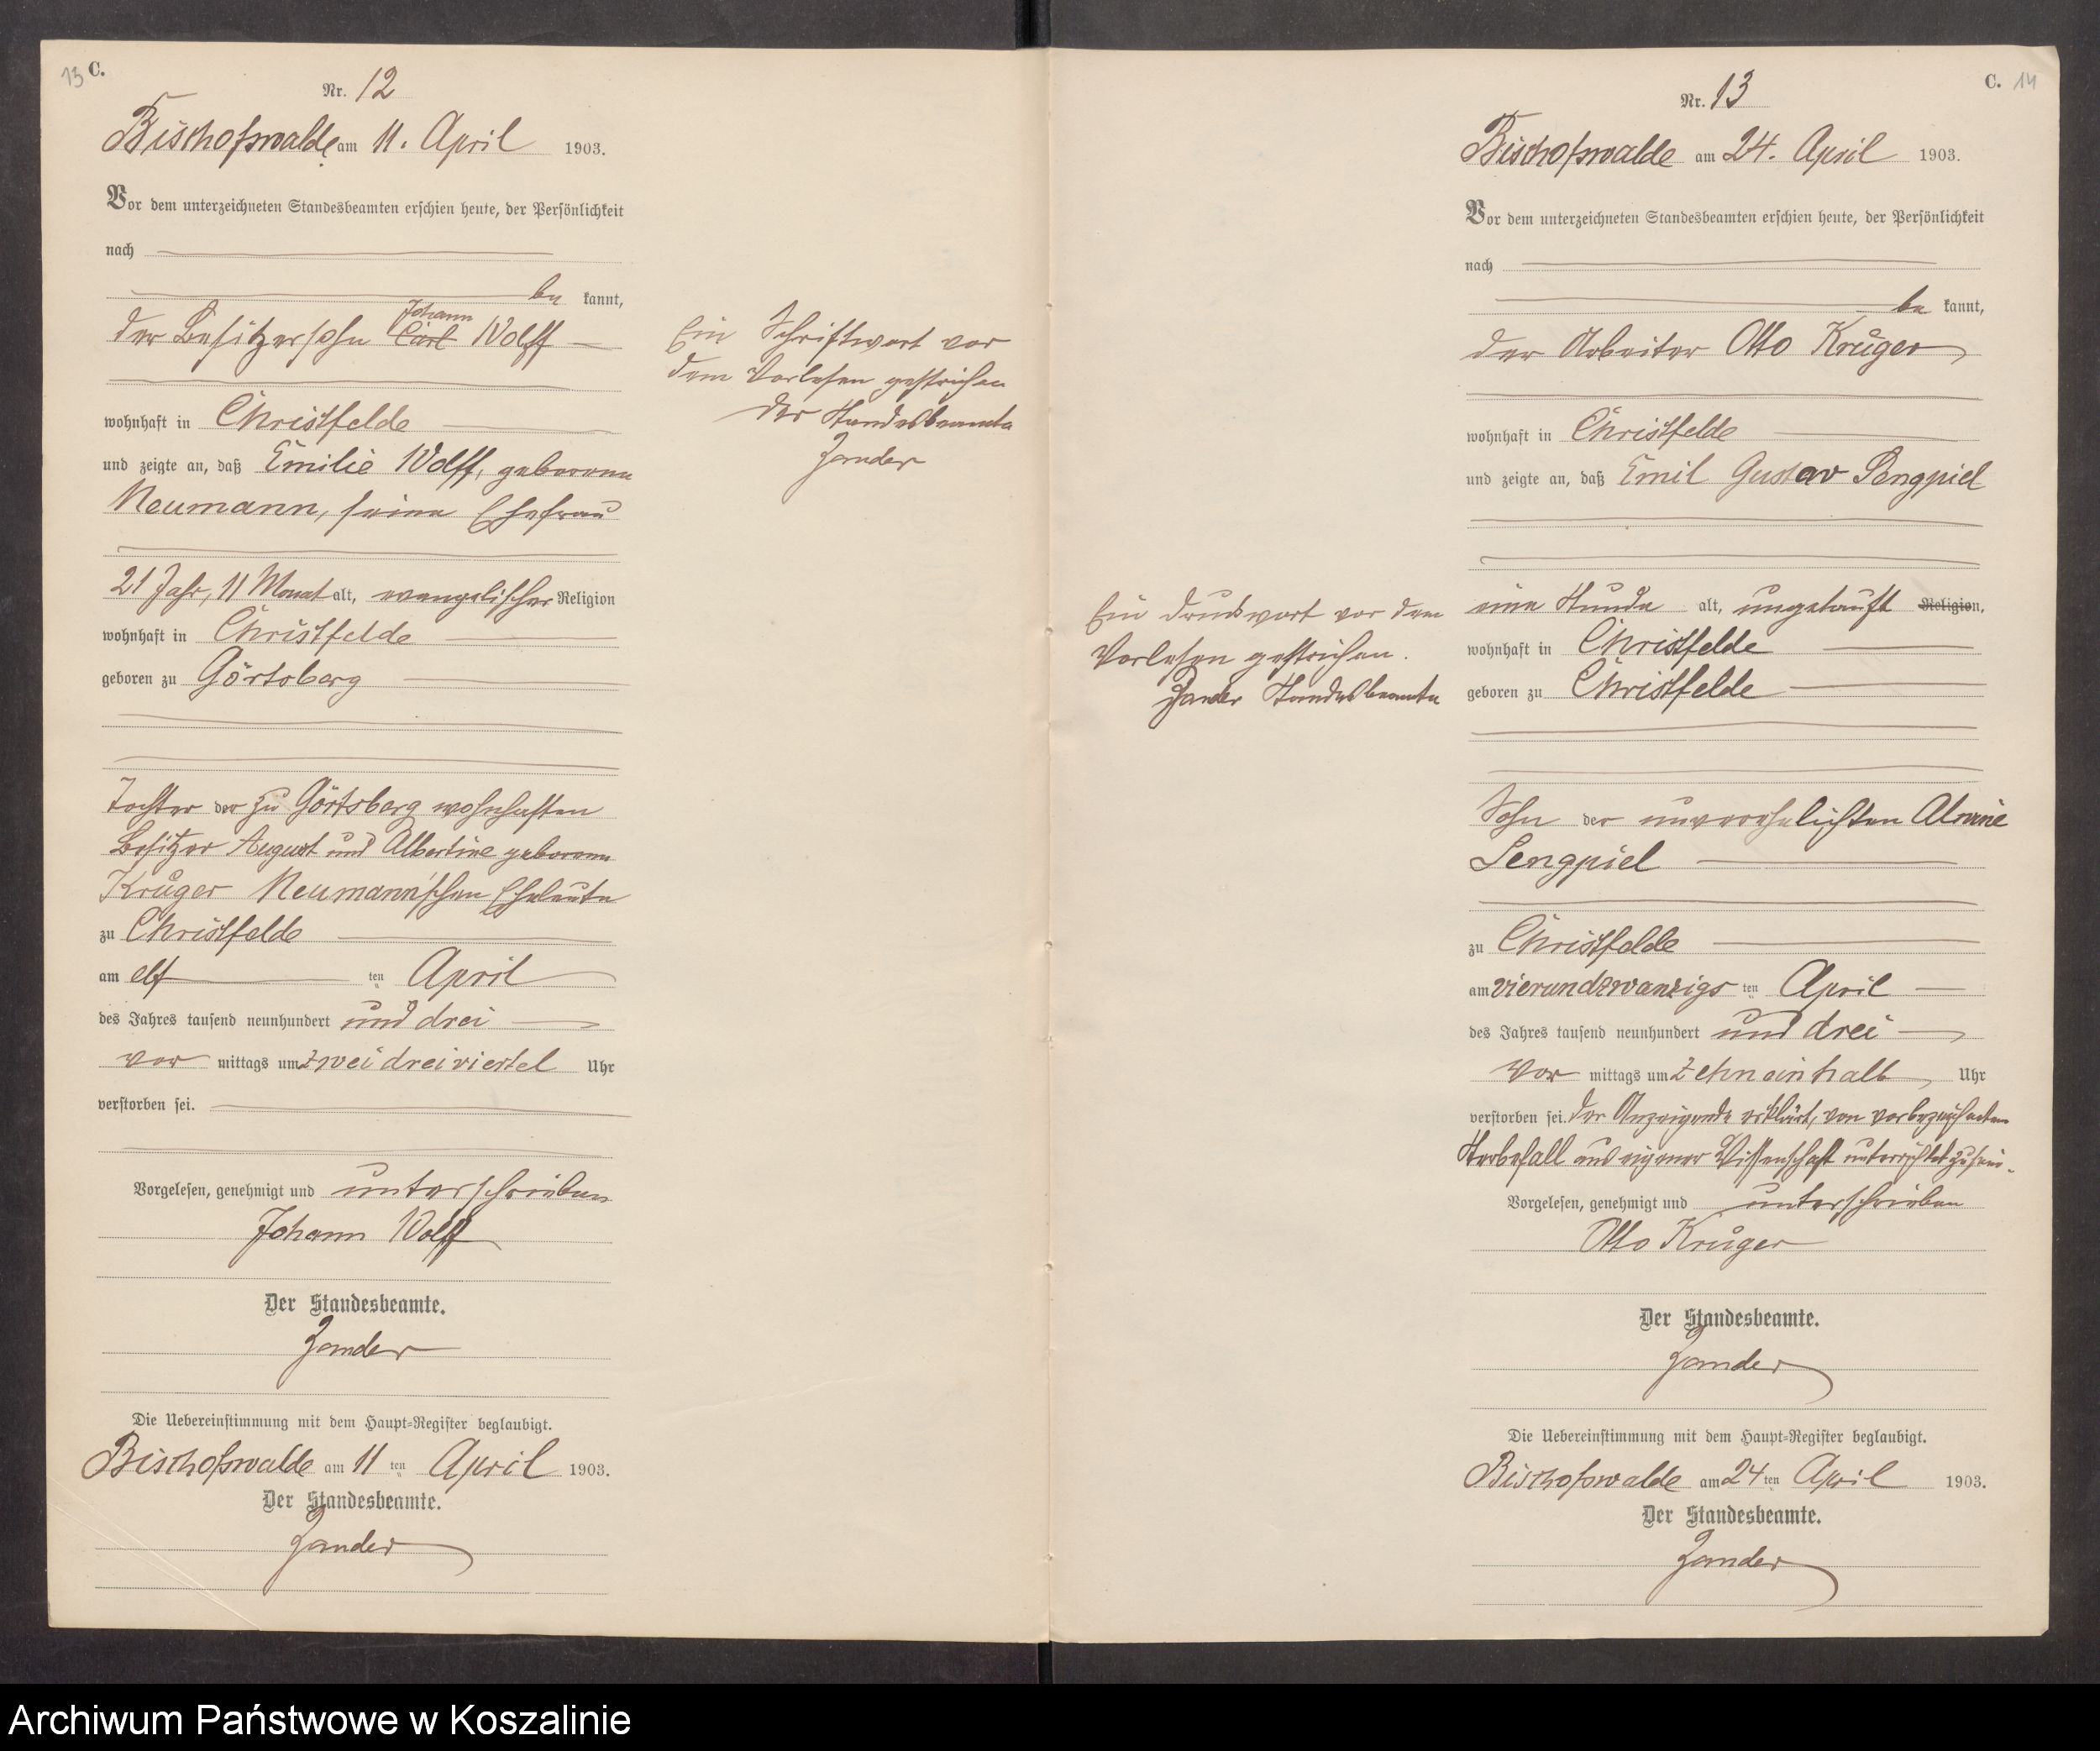 13 C.
Nr. 12
Bischofswalde am 11. April 1903.
Vor dem unterzeichneten Standesbeamten erschien heute, der Persönlichkeit
nach
be kannt,
Johann
der Besitzersohn Carl Wolff
wohnhaft in Christfelde
und zeigte an, daß Emilie Wolff, geborene
Neumann, seine Ehefrau
21 Jahr, 11 Monat alt, evangelischer Religion
wohnhaft in Christfelde
geboren zu Görtsberg
Tochter der zu Görtsberg wohnhaften
Besitzer August und Albertine geborene
Krüger Neumann'schen Eheleute
zu Christfelde
am elf ten April
des Jahres tausend neunhundert und drei
vor mittags um zwei dreiviertel Uhr
verstorben sei.
Vorgelesen, genehmigt und unterschrieben
Johann Wolff
Der Standesbeamte.
Zander
Die Uebereinstimmung mit dem Haupt-Register beglaubigt.
Bischofswalde am 11 ten April 1903.
Der Standesbeamte.
Zander
Ein Schriftwort vor
dem Vorlesen gestrichen
Der Standesbeamte
Zander
C. 14
Nr. 13
Bischofswalde am 24. April 1903.
Vor dem unterzeichneten Standesbeamten erschien heute, der Persönlichkeit
nach
be kannt,
der Arbeiter Otto Krüger
wohnhaft in Christfelde
und zeigte an, daß Emil Gustav Sengpiel
eine Stunde alt, ungetauft Religion,
wohnhaft in Christfelde
geboren zu Christfelde
Sohn der unverehelichten Alwine
Sengpiel
zu Christfelde
am vierundzwanzigs ten April
des Jahres tausend neunhundert und drei
Vor mittags um zehneinhalb Uhr
verstorben sei. Der Anzeigende erklärt, von vorbezeichneten
Sterbefall aus eigener Wissenschaft unterrichtet zu sein.
Vorgelesen, genehmigt und unterschrieben
Otto Krüger
Der Standesbeamte.
Zander
Die Uebereinstimmung mit dem Haupt-Register beglaubigt.
Bischofswalde am 24 ten April 1903.
Der Standesbeamte.
Zander
Ein Druckwort vor dem
Vorlesen gestrichen.
Zander Standesbeamte
Archiwum Państwowe w Koszalinie